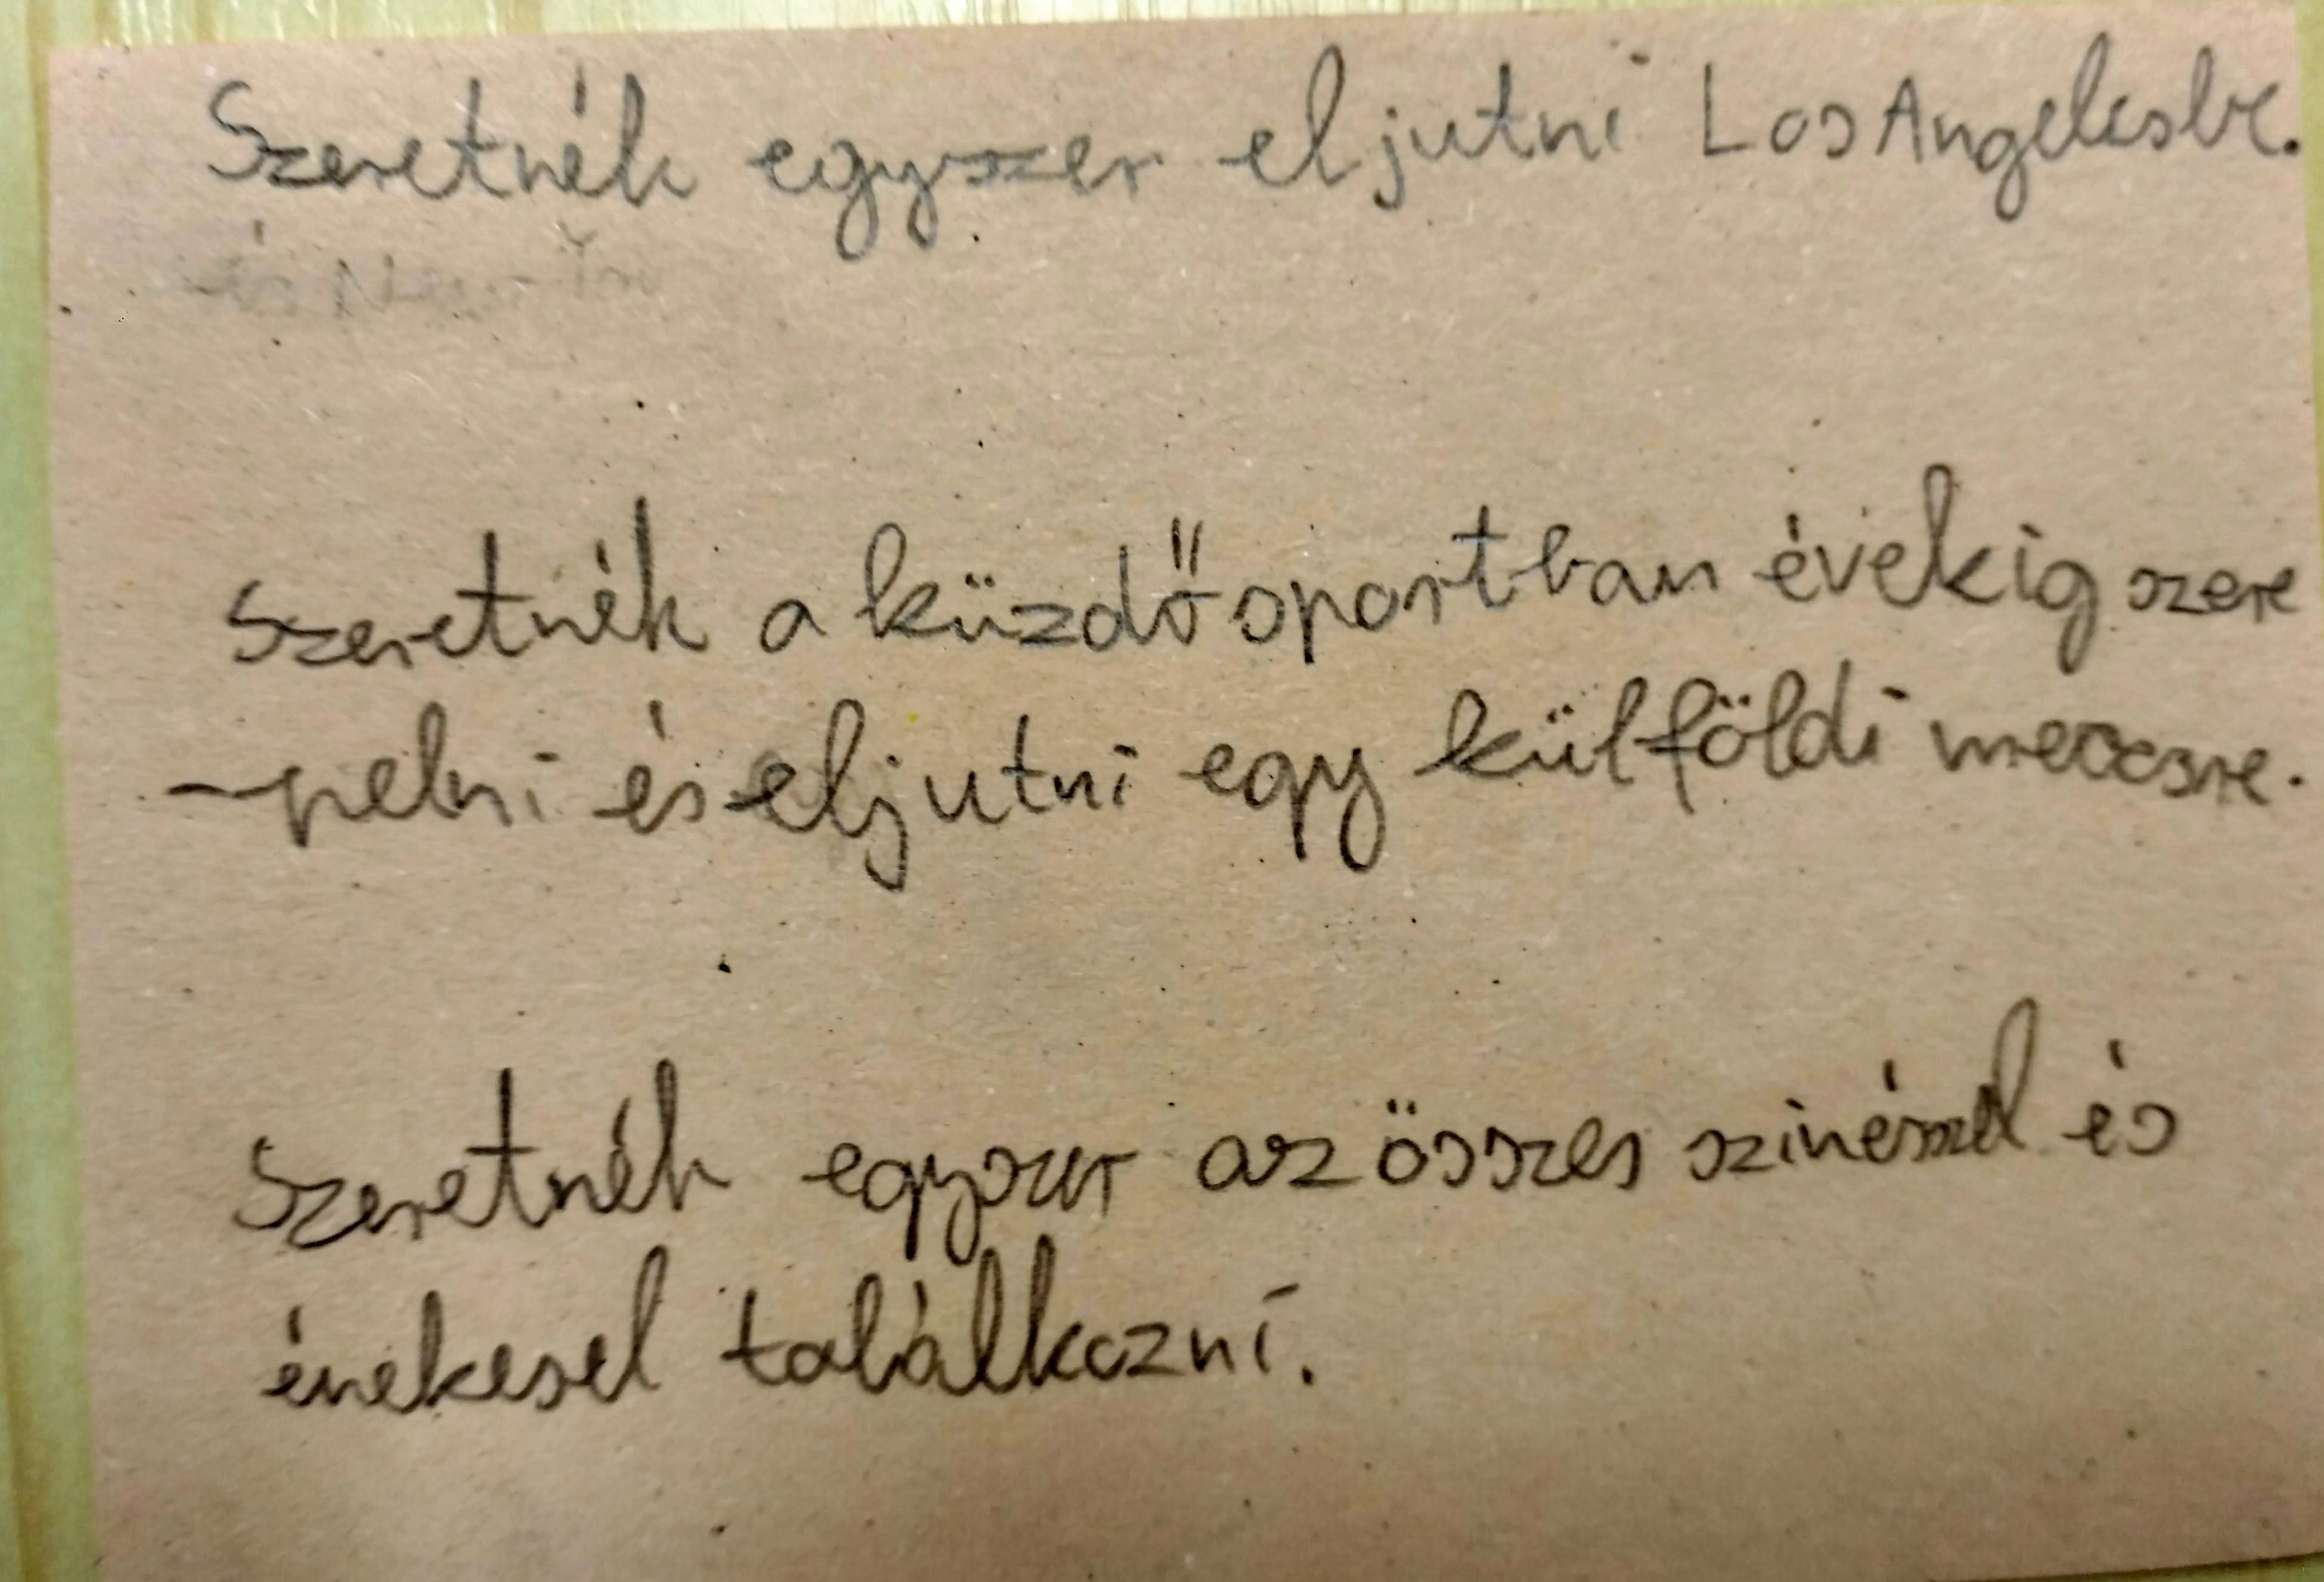 Szeretnék egyszer eljutni Los Angelesbe.
és New
Szeretnék a küzdősportban évekig szere
-pelni és eljutni egy külföldi meccsre.
Szeretnék egyszer az összes szinésszel és
énekesel találkozni.